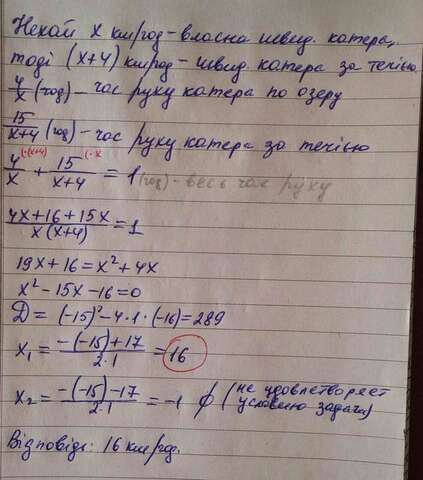 Нехай x км/год - власна швид. катера,
тоді (x+4) км/год - швид. катера за течією
4/x (год) - час руху катера по озеру
15/(x+4) (год) - час руху катера за течією
4/x (·(x+4) + 15/(x+4) (·x = 1 (год) - весь час руху
(4x+16+15x)/(x(x+4)) = 1
19x+16 = x²+4x
x²-15x-16=0
D = (-15)²-4·1·(-16)=289
x₁ = (-(-15)+17)/(2·1) = 16
x₂ = (-(-15)-17)/(2·1) = -1 ∅ (не удовлетворяет
условию задачи)
Відповідь: 16 км/год.